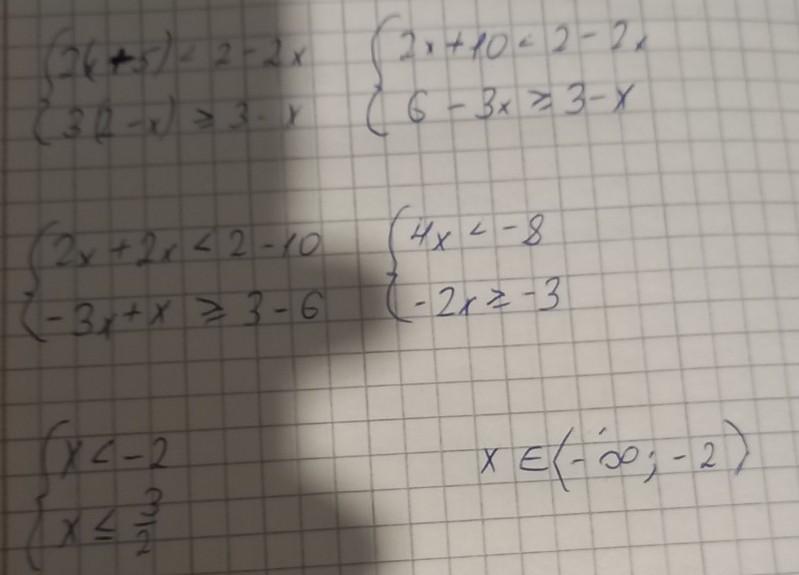 {2(+5) < 2 - 2x
{3(2 - x) ≥ 3 - x
{2x + 10 < 2 - 2x
{6 - 3x ≥ 3 - x
{2x + 2x < 2 - 10
{-3x + x ≥ 3 - 6
{4x < -8
{-2x ≥ -3
{x < -2
{x ≤ 3/2
x ∈ (-∞; -2)